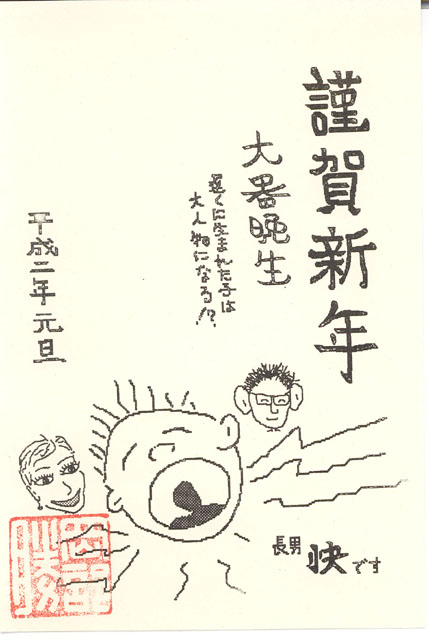 謹賀新年
大器晩生
遅くに生まれた子は
大人物になる!?
平成二年元旦
長男 快です